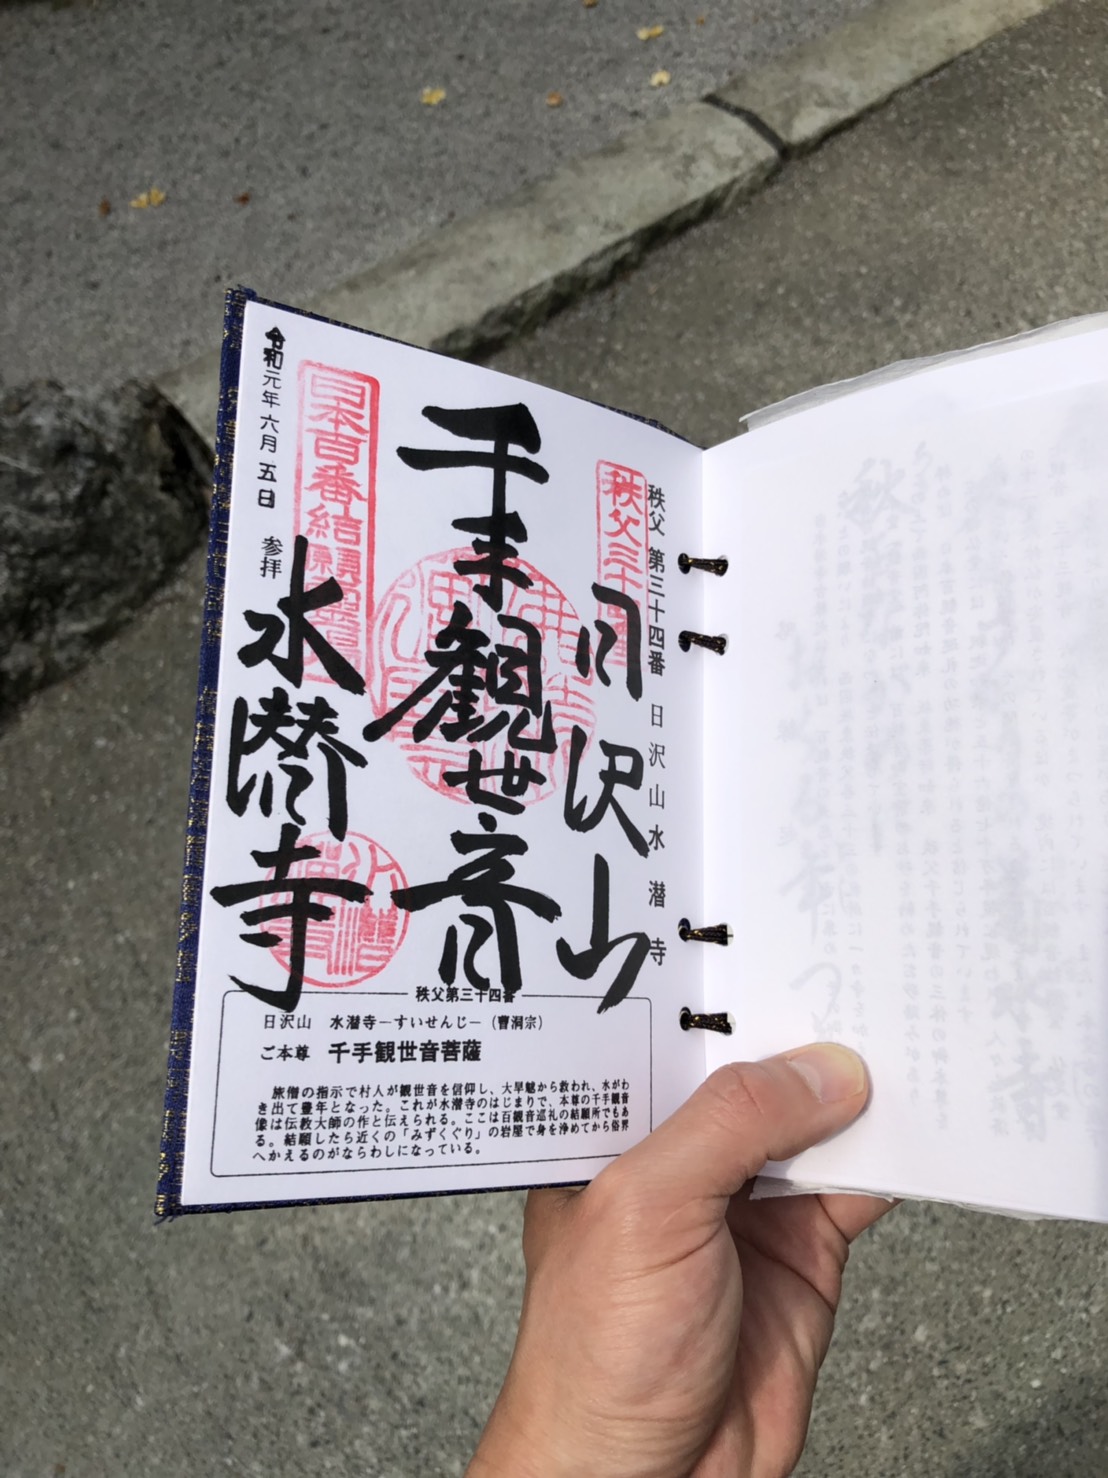 秩父 第三十四番 日沢山水潜寺
秩父三十四
日沢山
千手観世音
水潜寺
日本百番結願
令和元年六月五日 参拝
秩父第三十四番
日沢山 水潜寺―すいせんじ―（曹洞宗）
ご本尊 千手観世音菩薩
旅僧の指示で村人が観世音を信仰し、大旱魃から救われ、水がわ
き出て豊年となった。これが水潜寺のはじまりで、本尊の千手観音
像は伝教大師の作と伝えられる。ここは百観音巡礼の結願所でもあ
る。結願したら近くの「みずくぐり」の岩屋で身を浄めてから俗界
へかえるのがならわしになっている。